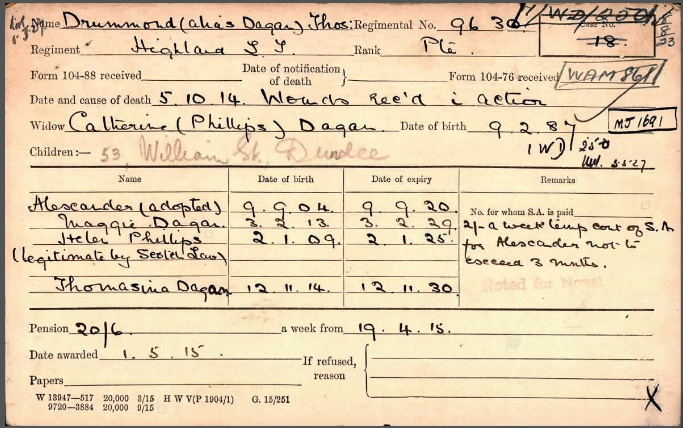 Name Drummond (alias Dagan) Thos: Regimental No. 9630 Case No.
Regiment Highland L I Rank Pte. 18.
Form 104-88 received Date of notification of death } Form 104-76 received WAM 861
Date and cause of death 5.10.14. Wounds rec'd i action
Widow Catherine (Phillips) Dagan. Date of birth 9.2.87 MJ 1691
(W)
Children:— 53, William St. Dundee 5.5.27
Name Date of birth Date of expiry Remarks
Alescander (adopted) 9.9.04. 9.9.20. No. for whom S.A. is paid
Maggie Dagan. 3.2.13. 3.2.29. 2/- a week temp cont of S.A.
Helen Phillips 2.1.09. 2.1.25. for Alescander not to
(legitimate by Scotch Law) exceed 3 mnths.
Thomasina Dagan 12.11.14. 12.11.30. Noted for Novel
Pension 20/6. a week from 19.4.15.
Date awarded 1.5.15. If refused, reason
Papers X
W 13947—517 20,000 3/15 H W V(P 1904/1) G. 15/251
9720—3884 20,000 9/15